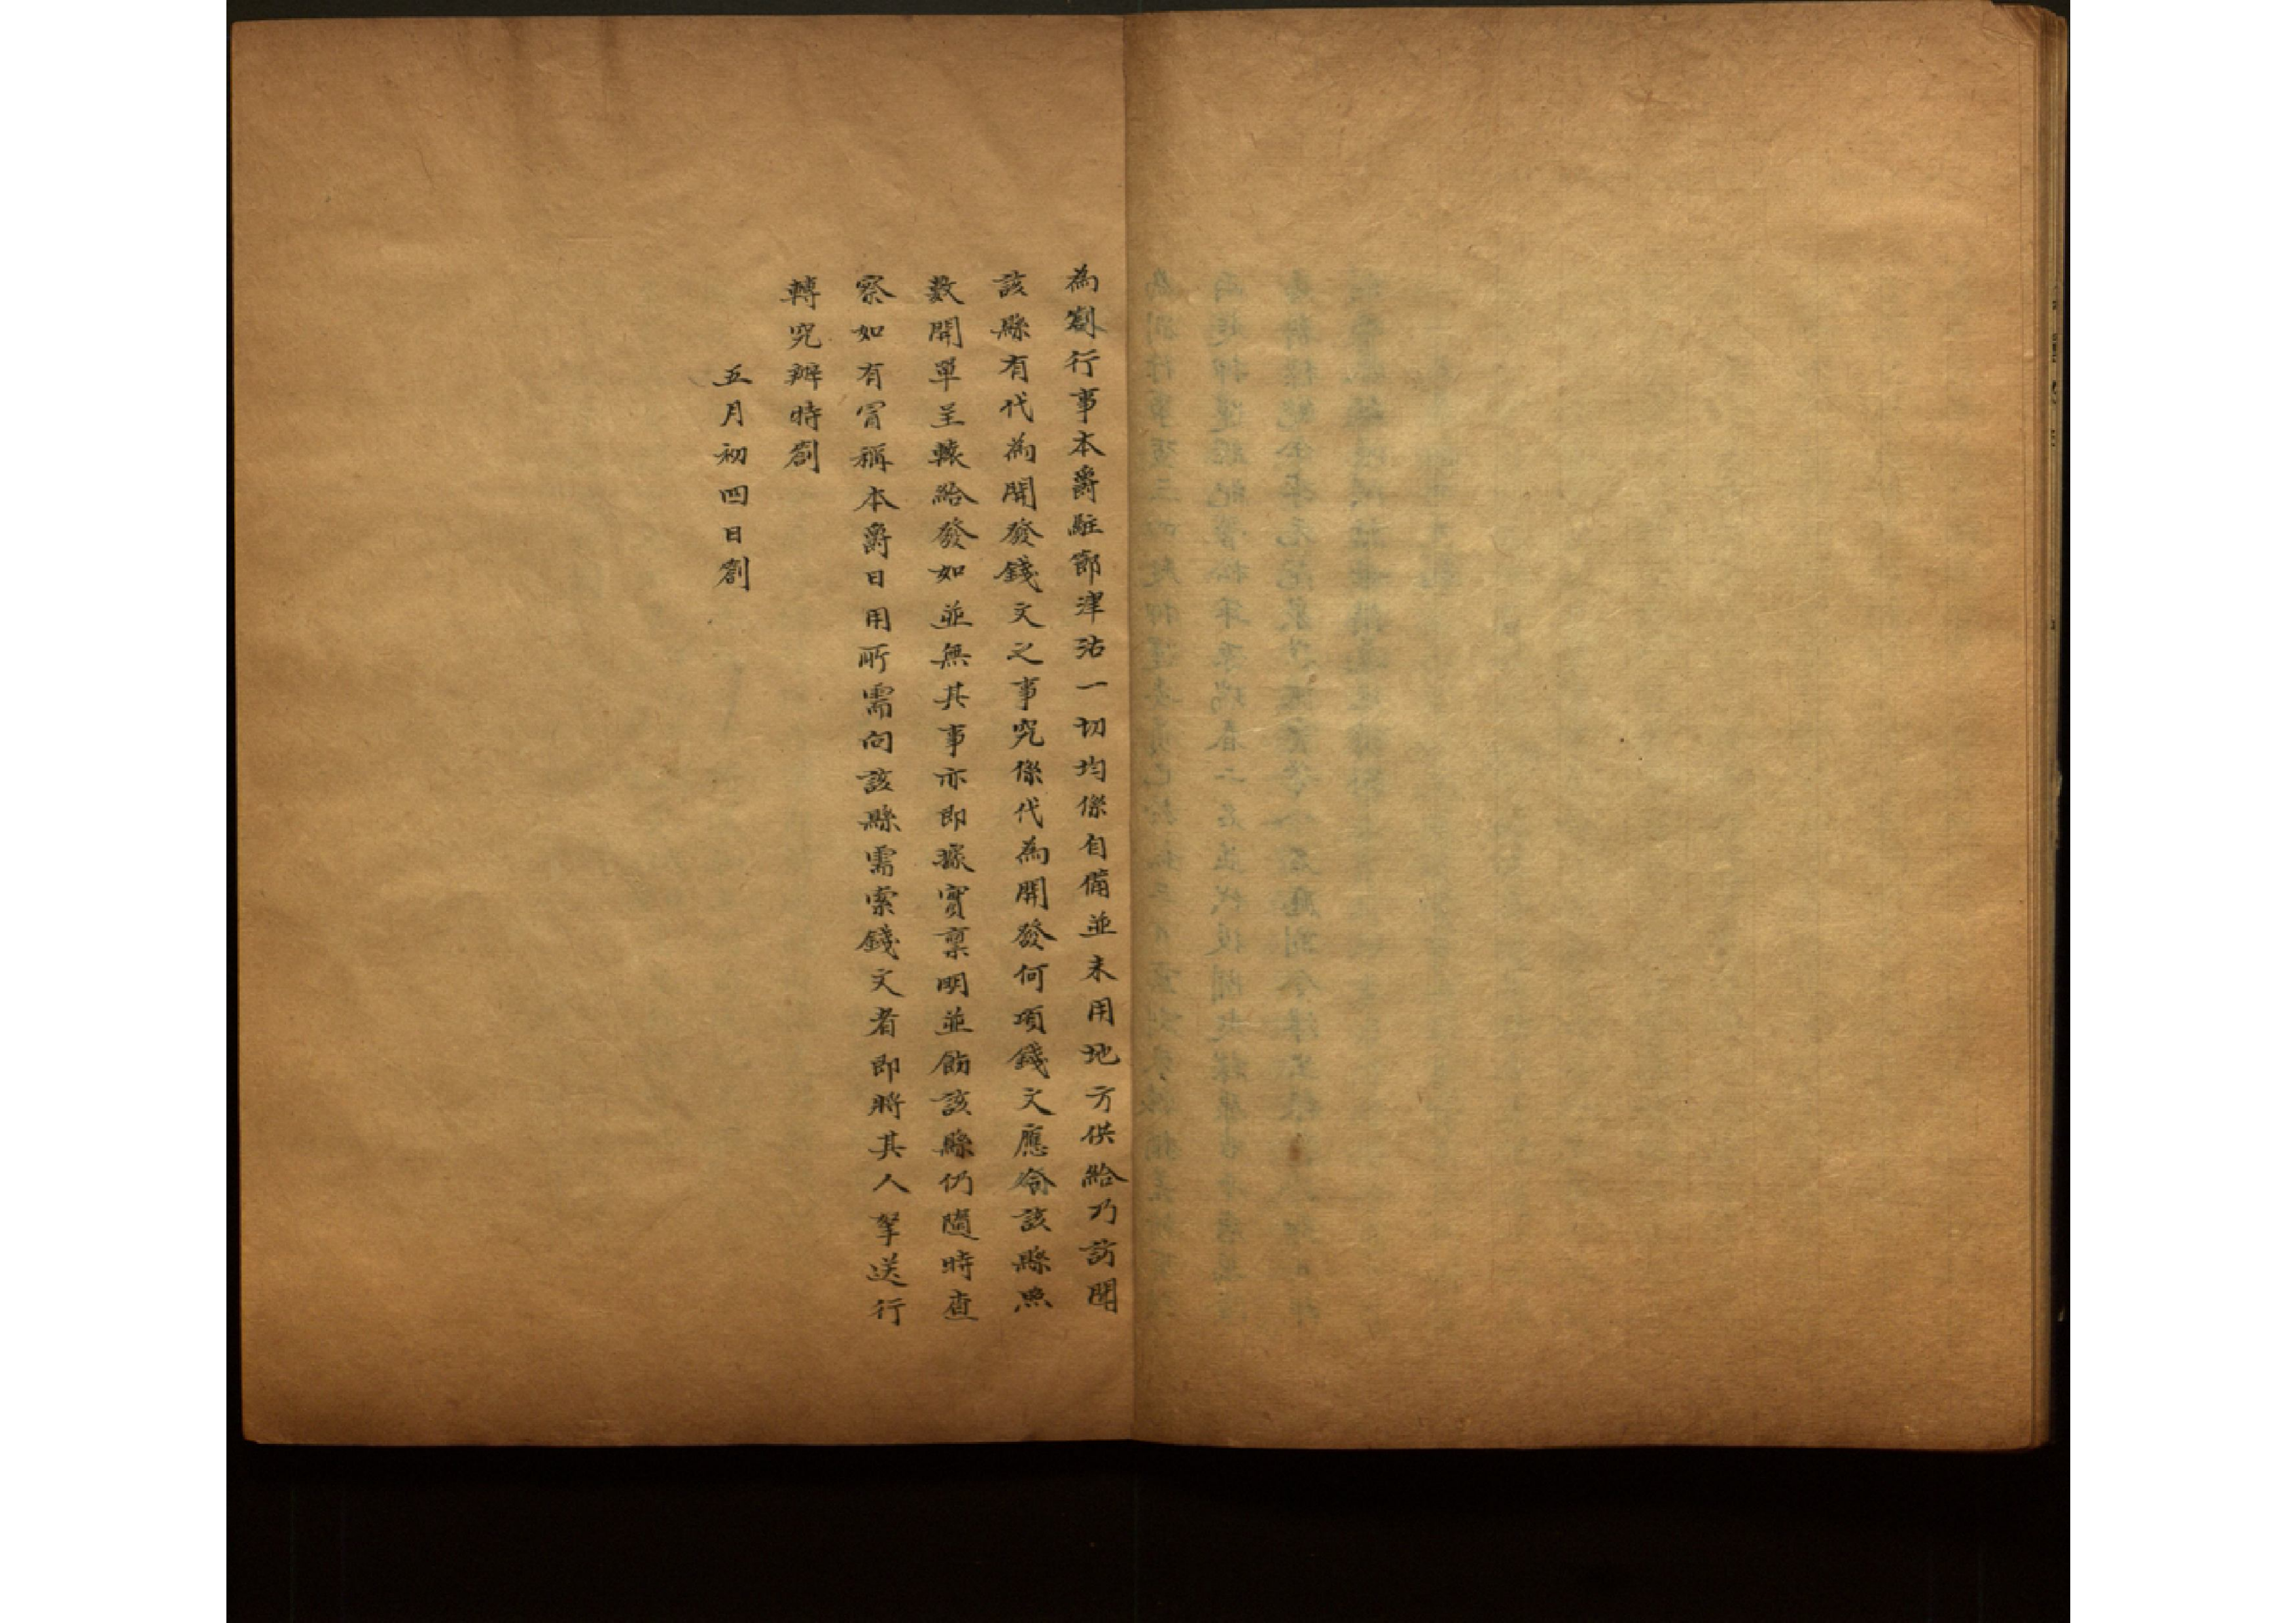 為劄行事本爵駐節津沽一切均係自備並未用地方供給乃訪聞
該縣有代為開發錢文之事究係代為開發何項錢文應飭該縣照
數開單呈轅給發如並無其事亦即據實稟明並飭該縣仍隨時查
察如有冒稱本爵日用所需向該縣需索錢文者即將其人拏送行
轅究辦特劄
五月初四日劄